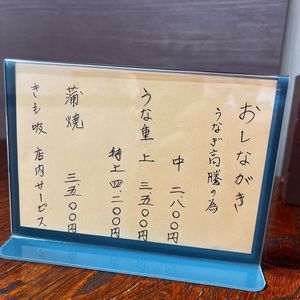 おしながき
うなぎ高騰の為
中 二八〇〇円
うな重 上 三五〇〇円
特上 四二〇〇円
蒲焼 三五〇〇円
きも吸 店内サービス